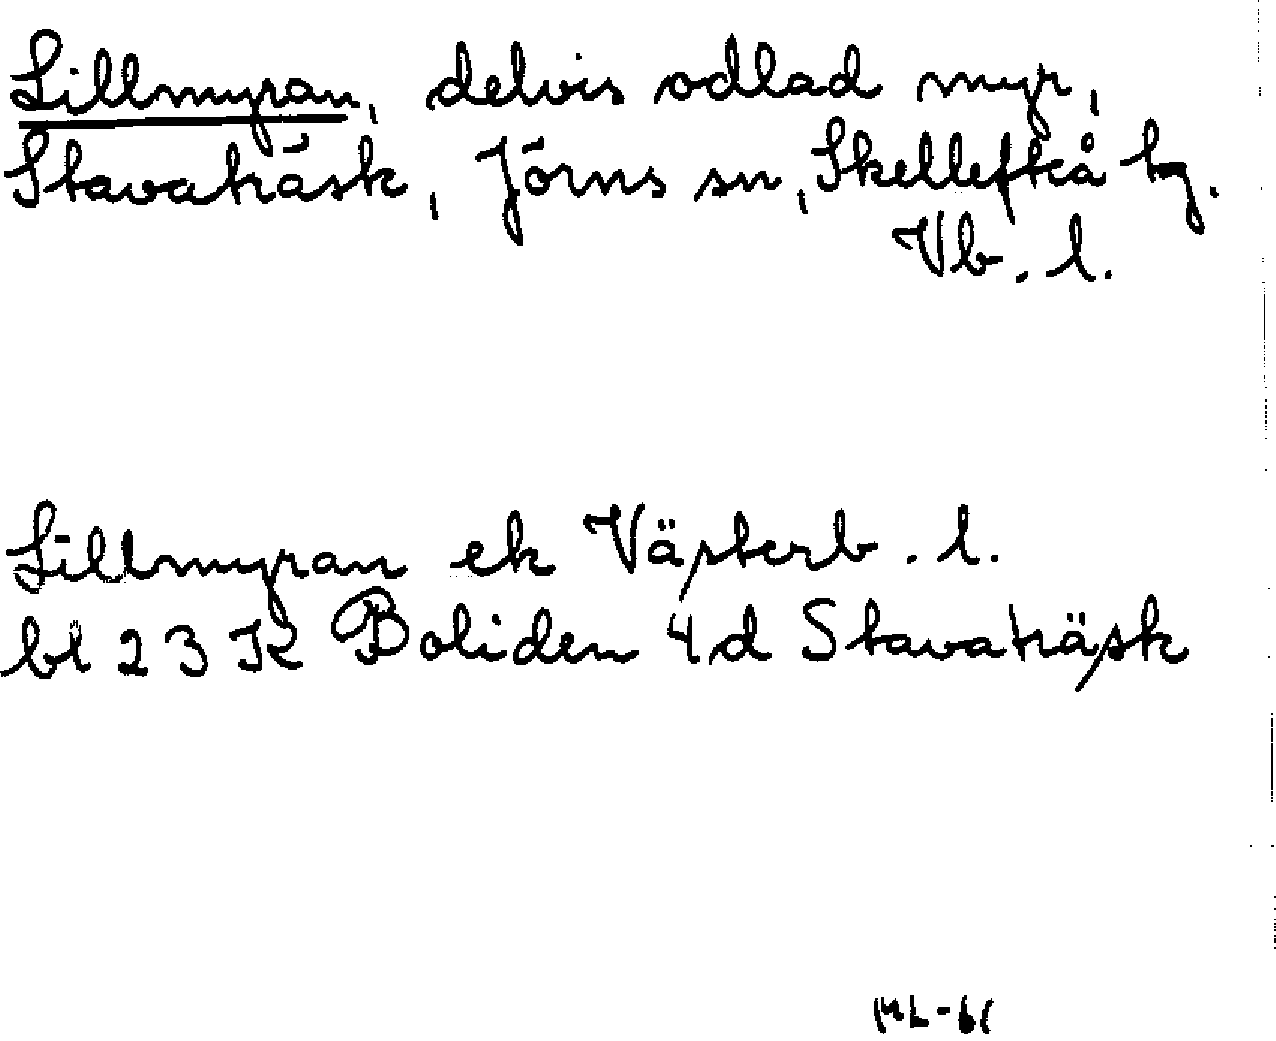 Lillmyran, delvis odlad myr,
Stavaträsk, Jörns sn, Skellefteå tg.
Vb. l.
Lillmyran ek Västerb. l.
bl 23 K Boliden 4d Stavaträsk